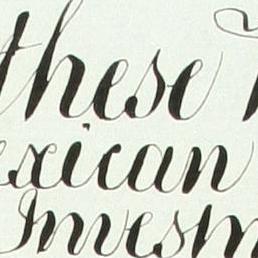 these
exican
Investm